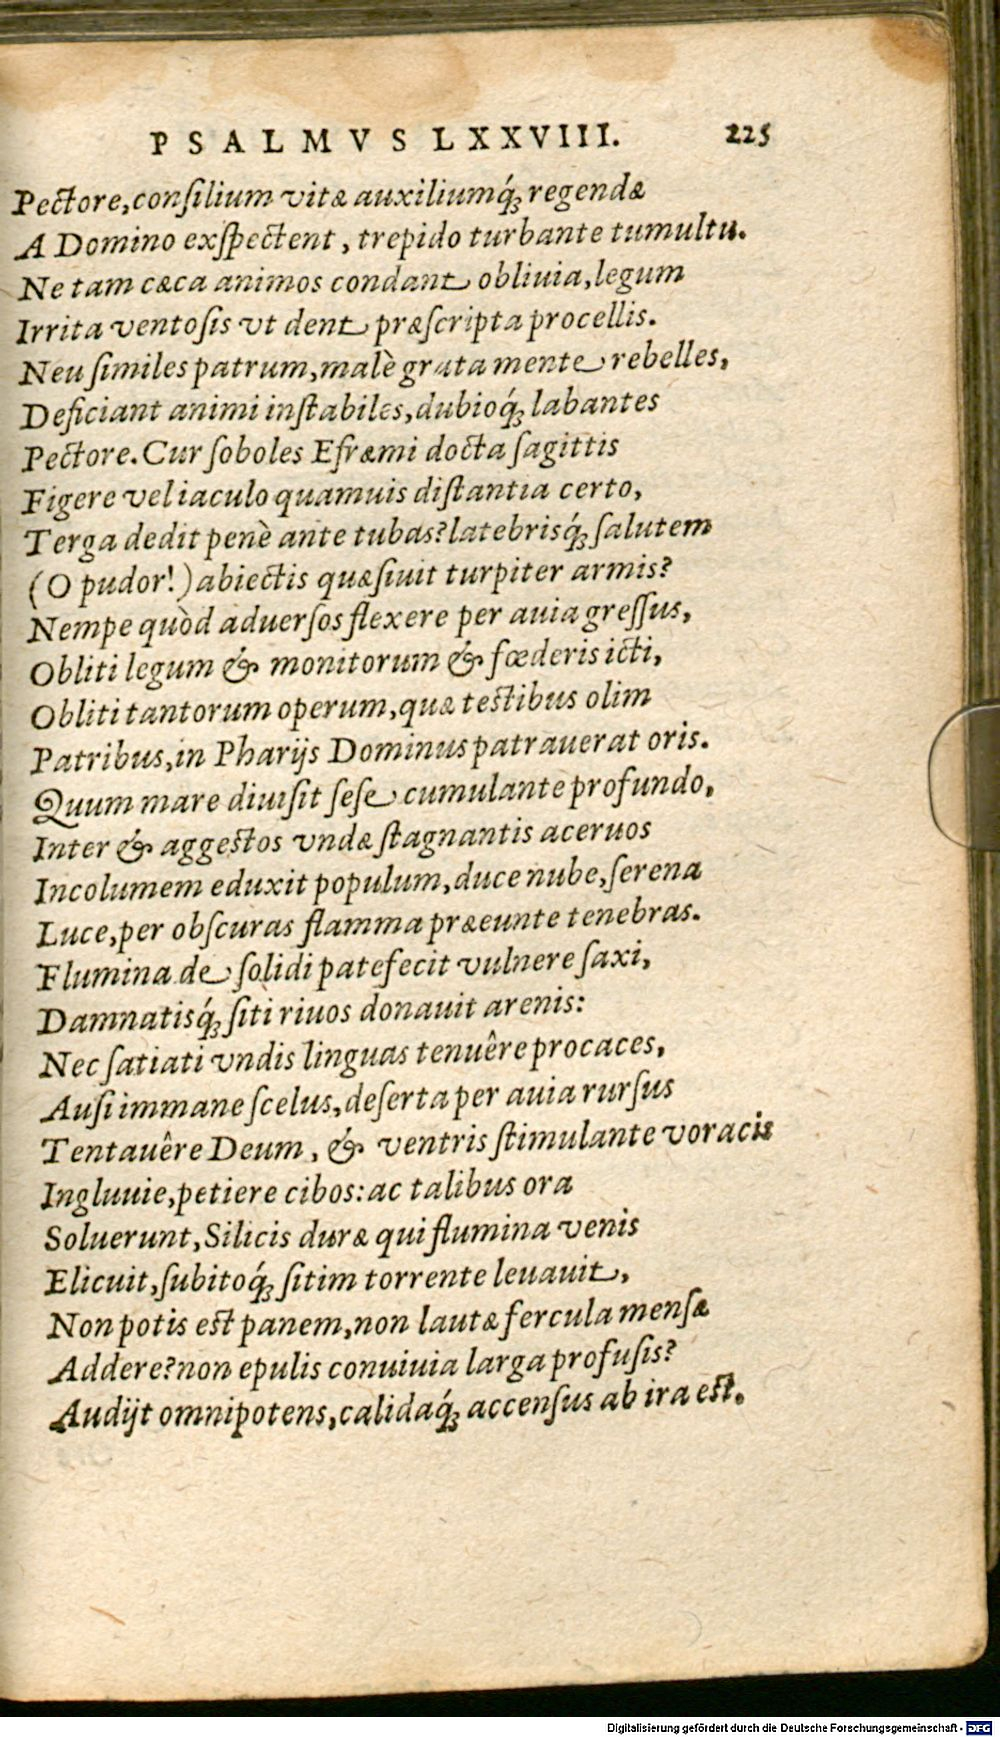 PSALMVS LXXVIII. 225
Pectore, conſilium vitæ auxiliumq́; regendæ
A Domino exſpectent, trepido turbante tumultu.
Ne tam cæca animos condant obliuia, legum
Irrita ventoſis vt dent præſcripta procellis.
Neu ſimiles patrum, malè grata mente rebelles,
Deficiant animi inſtabiles, dubioq́; labantes
Pectore. Cur ſoboles Efræmi docta ſagittis
Figere vel iaculo quamuis diſtantia certo,
Terga dedit penè ante tubas? latebrisq́; ſalutem
(O pudor!) abiectis quæſiuit turpiter armis?
Nempe quòd aduerſos flexere per auia greſſus,
Obliti legum & monitorum & fœderis icti,
Obliti tantorum operum, quæ teſtibus olim
Patribus, in Pharijs Dominus patrauerat oris.
Quum mare diuiſit ſeſe cumulante profundo,
Inter & aggeſtos vndæ ſtagnantis aceruos
Incolumem eduxit populum, duce nube, ſerena
Luce, per obſcuras flamma præeunte tenebras.
Flumina de ſolidi patefecit vulnere ſaxi,
Damnatisq́; ſiti riuos donauit arenis:
Nec ſatiati vndis linguas tenuêre procaces,
Auſi immane ſcelus, deſerta per auia rurſus
Tentauêre Deum, & ventris ſtimulante voracis
Ingluuie, petiere cibos: ac talibus ora
Soluerunt, Silicis duræ qui flumina venis
Elicuit, ſubitoq́; ſitim torrente leuauit,
Non potis eſt panem, non lautæ fercula menſæ
Addere? non epulis conuiuia larga profuſis?
Audijt omnipotens, calidaq́; accenſus ab ira eſt.
Digitalisierung gefördert durch die Deutsche Forschungsgemeinschaft - DFG